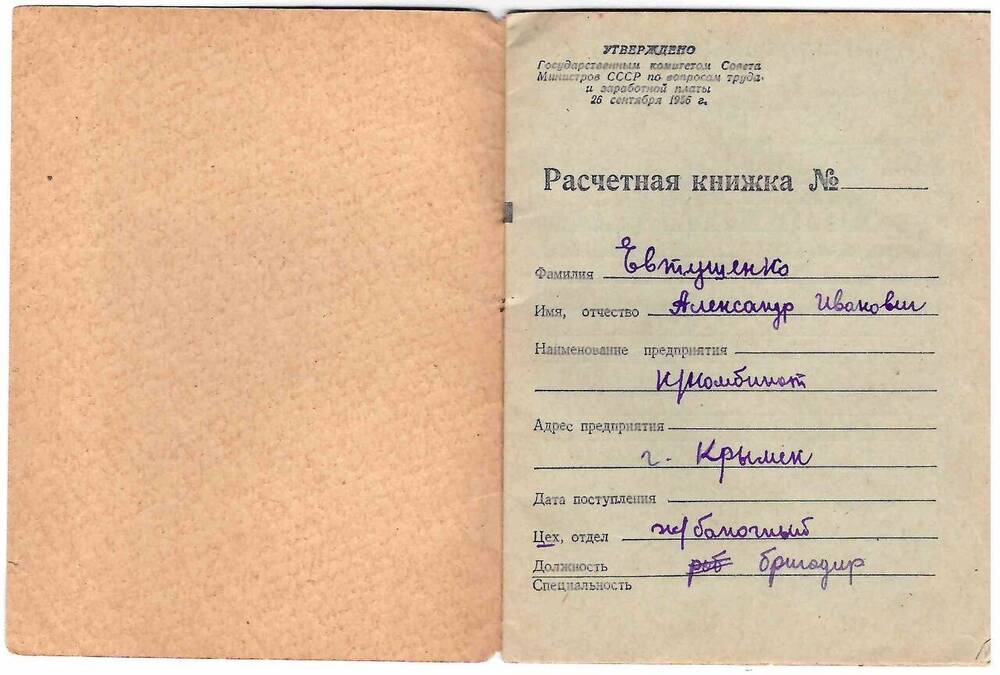 УТВЕРЖДЕНО
Государственным комитетом Совета
Министров СССР по вопросам труда
и заработной платы
26 сентября 1956 г.
Расчетная книжка №
Фамилия Евтущенко
Имя, отчество Александр Иванович
Наименование предприятия
К/Комбинат
Адрес предприятия
г. Крымск
Дата поступления
Цех, отдел ж/баночный
Должность роб бригадир
Специальность